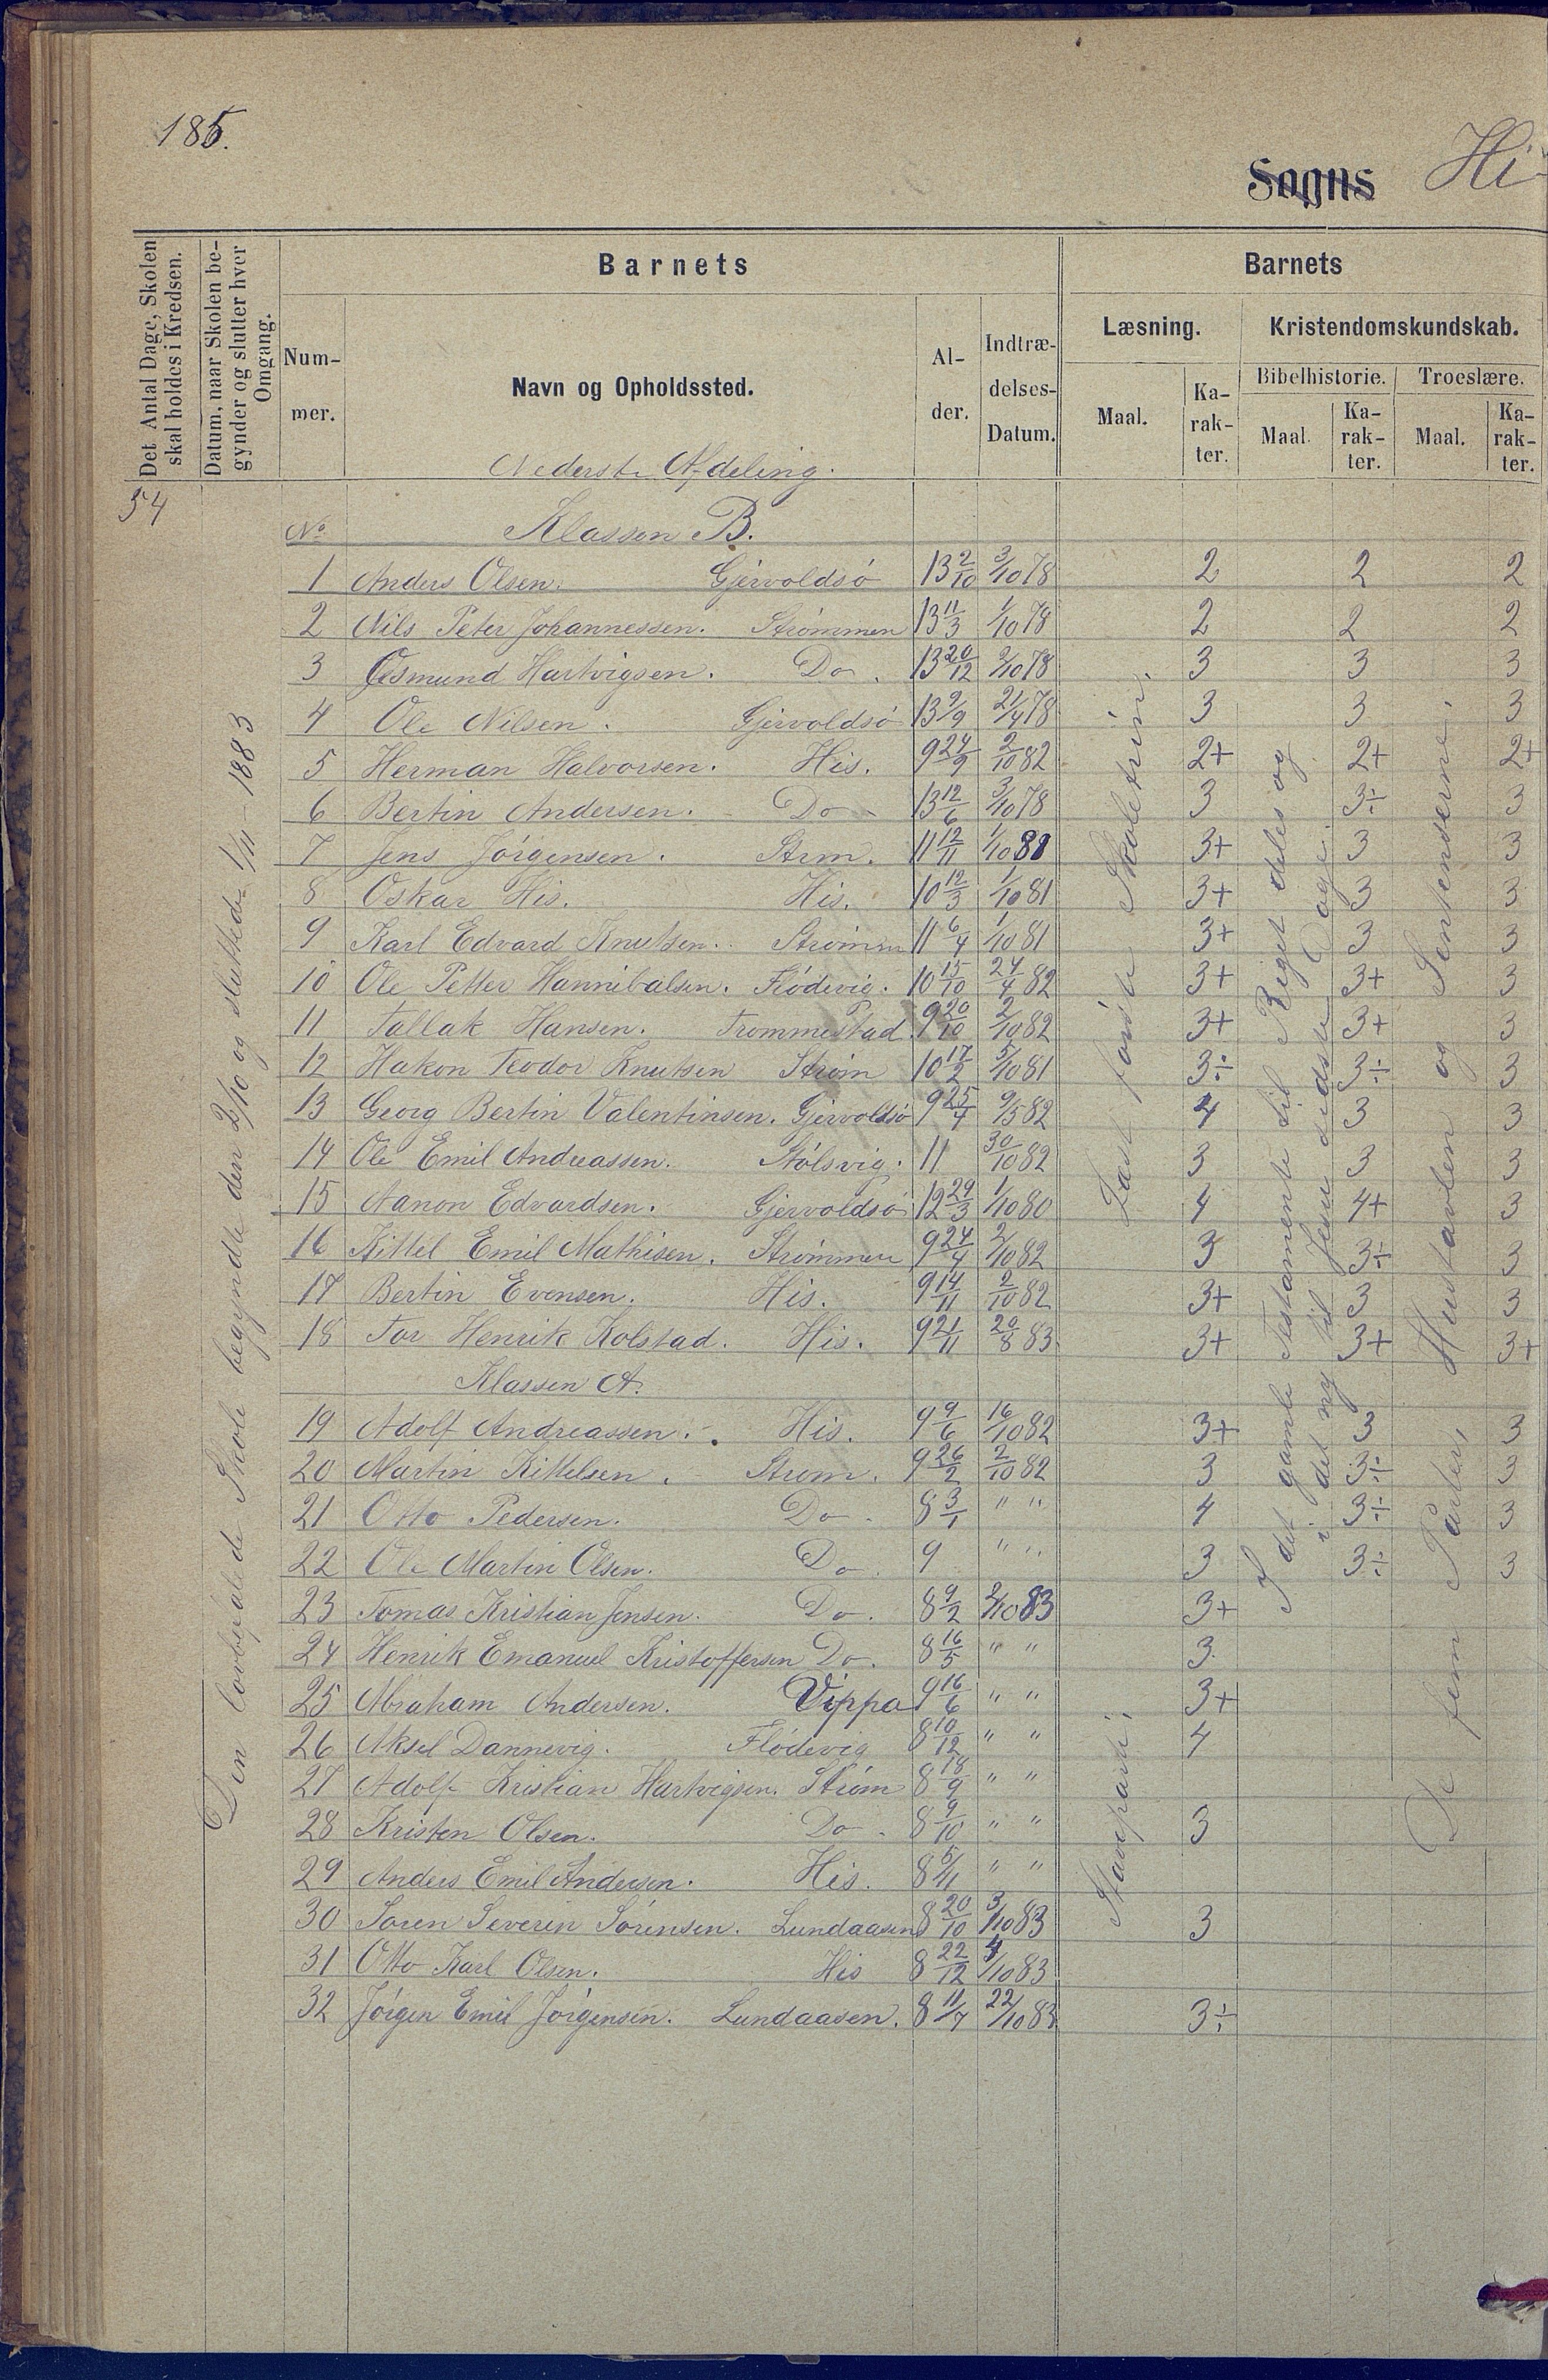 185.
Sogns Hi
Det Antal Dage, Skolen skal holdes i Kredsen.
Datum, naar Skolen begynder og slutter hver Omgang.
Barnets
Nummer.
Navn og Opholdssted.
Alder.
Indtrædelses-Datum.
Barnets
Læsning.
Maal.
Karakter.
Kristendomskundskab.
Bibelhistorie.
Maal.
Karakter.
Troeslære.
Maal.
Karakter.
Nederste Afdeling.
54
Den lovbefalede Skole begyndte den 2/10 og sluttede 1/11 - 1883
No Klassen B.
1 Anders Olsen. Gjervoldsö 13 2/10 3/10 78 2 2 2
2 Nils Peter Johannessen. Strömmen 13 11/3 1/10 78 2 2 2
3 Osmund Hartvigsen. Do. 13 20/12 2/10 78 3 3 3
4 Ole Nilsen. Gjervoldsö 13 9/9 21/4 78 3 3 3
5 Herman Halvorsen. His. 9 24/9 2/10 82 2+ 2+ 2+
6 Bertin Andersen. Do 13 12/6 3/10 78 3 3÷ 3
7 Jens Jörgensen. Strm. 11 12/11 1/10 81 3+ 3 3
8 Oskar His. His. 10 12/3 1/10 81 3+ 3 3
9 Karl Edvard Knutsen. Strömm 11 6/4 1/10 81 3+ 3 3
10 Ole Petter Hannibalsen. Flödevig. 10 15/10 24/4 82 3+ 3+ 3
11 Tallak Hansen. Trommestad. 9 20/10 2/10 82 3+ 3+ 3
12 Hakon Teodor Knutsen Ström 10 17/2 3/10 81 3÷ 3÷ 3
13 Georg Bertin Valentinsen. Gjervoldsö 9 25/4 9/5 82 4 3 3
14 Ole Emil Andreassen. Stölsvig. 11 30/10 82 3 3 3
15 Aanon Edvardsen. Gjervoldsö 12 29/3 1/10 80 4 4+ 3
16 Kittel Emil Mathisen. Strömmen 9 24/4 2/10 82 3 3÷ 3
17 Bertin Evensen. His. 9 14/11 2/10 82 3+ 3 3
18 Tor Henrik Kolstad. His. 9 21/11 20/8 83 3+ 3+ 3+
Klassen A.
19 Adolf Andreassen. His. 9 9/6 16/10 82 3+ 3 3
20 Martin Kittelsen. Strøm. 9 26/2 2/10 82 3 3÷ 3
21 Otto Pedersen. Do. 8 3/1 " " 4 3÷ 3
22 Ole Martin Olsen. Do. 9 " " 3 3÷ 3
23 Tomas Kristian Jensen. Do. 8 9/2 2/10 83 3+
24 Henrik Emanuel Kristoffersen Do. 8 16/5 " " 3.
25 Abraham Andersen. Vippa 9 16/6 " " 3+
26 Aksel Dannevig. Flödevig 8 10/12 " " 4
27 Adolf Kristian Hartvigsen. Ström 8 18/9 " "
28 Kristen Olsen. Do. 8 9/10 " " 3
29 Anders Emil Andersen. His. 8 5/11 " "
30 Sören Severin Sörensen. Lundaasen 8 20/10 3/10 83 3
31 Otto Karl Olsen. His 8 22/12 4/10 83
32 Jörgen Emil Jörgensen. Lundaasen. 8 11/7 22/10 83 3÷
Læst förste Skoletrin.
Stavepartiet.
I det gamle Testamente til Riget deles og
i det ny til Jesu sidste Dage.
De fem Parter, Hustavlen og Sentenserne.